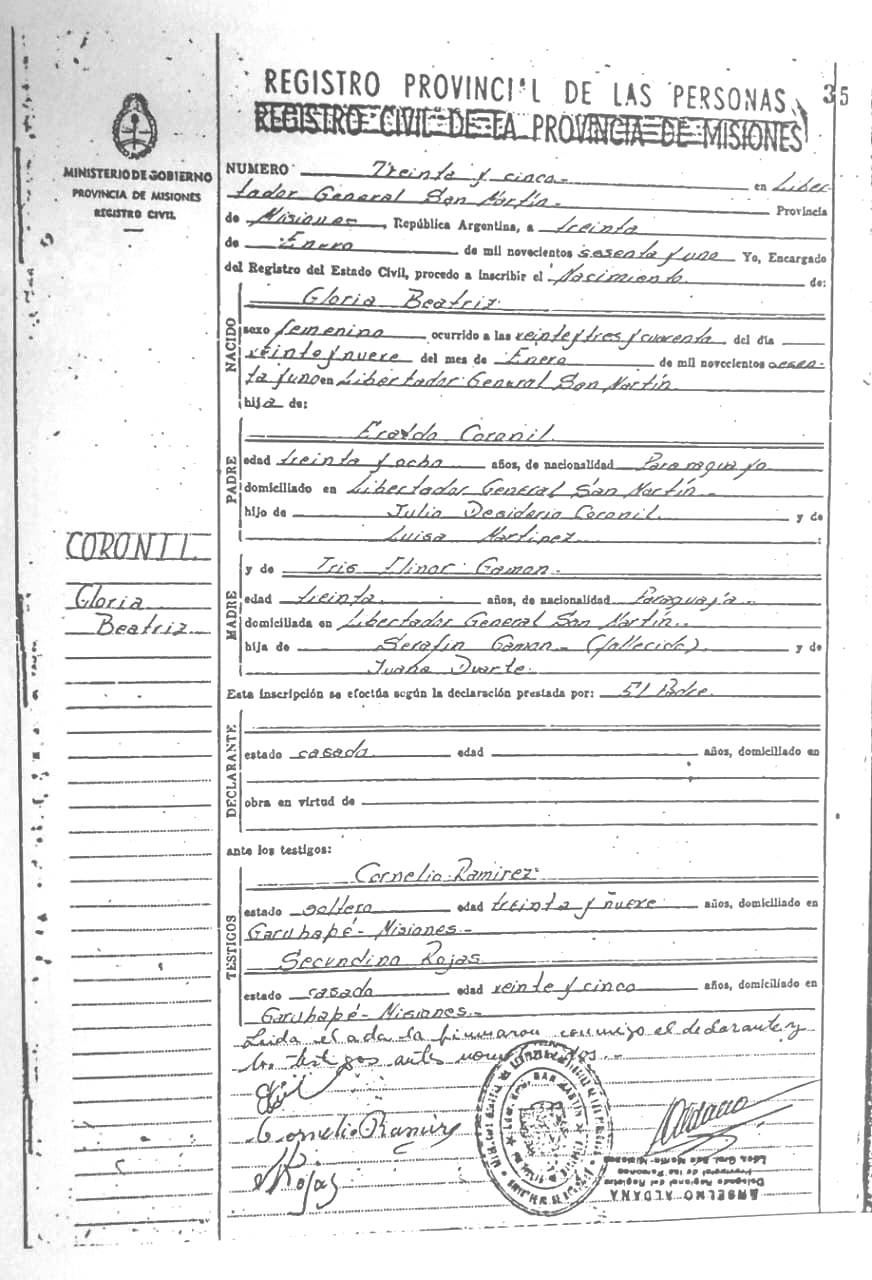 REGISTRO PROVINCIAL DE LAS PERSONAS
35
REGISTRO CIVIL DE LA PROVINCIA DE MISIONES
MINISTERIO DE GOBIERNO
PROVINCIA DE MISIONES
REGISTRO CIVIL
NUMERO Treinta y cinco en Liber-
tador General San Martín Provincia
de Misiones, República Argentina, a treinta
de Enero de mil novecientos sesenta y uno Yo, Encargado
del Registro del Estado Civil, procedo a inscribir el Nacimiento de:
NACIDO
Gloria Beatriz
sexo femenino ocurrido a las veinte y tres y cuarenta del día
veinte y nueve del mes de Enero de mil novecientos sesen-
ta y uno en Libertador General San Martín
hija de:
PADRE
Coronil
edad treinta y ocho años, de nacionalidad Paraguayo
domiciliado en Libertador General San Martín
hijo de Julio Desiderio Coronil y de
Luisa Martinez :
CORONIL
Gloria
Beatriz
MADRE
y de Iris Elinor Gamon
edad treinta años, de nacionalidad Paraguaya
domiciliada en Libertador General San Martín
hija de Serafín Gamon (fallecido) y de
Juana Duarte
Esta inscripción se efectúa según la declaración prestada por: El Padre
DECLARANTE
estado casado edad años, domiciliado en
obra en virtud de
ante los testigos:
TESTIGOS
Cornelio Ramirez
estado soltero edad treinta y nueve años, domiciliado en
Garuhapé - Misiones
Secundino Rojas
estado casado edad veinte y cinco años, domiciliado en
Garuhapé - Misiones
Leida el acta la firmaron conmigo el declarante y
los testigos antes nombrados
Cornelio Ramirez
Rojas
SAN MARTIN
Aldana
ANSELMO ALDANA
Delegado Regional del Registro
Provincial de las Personas
Ldor. Gral. San Martín - Misiones